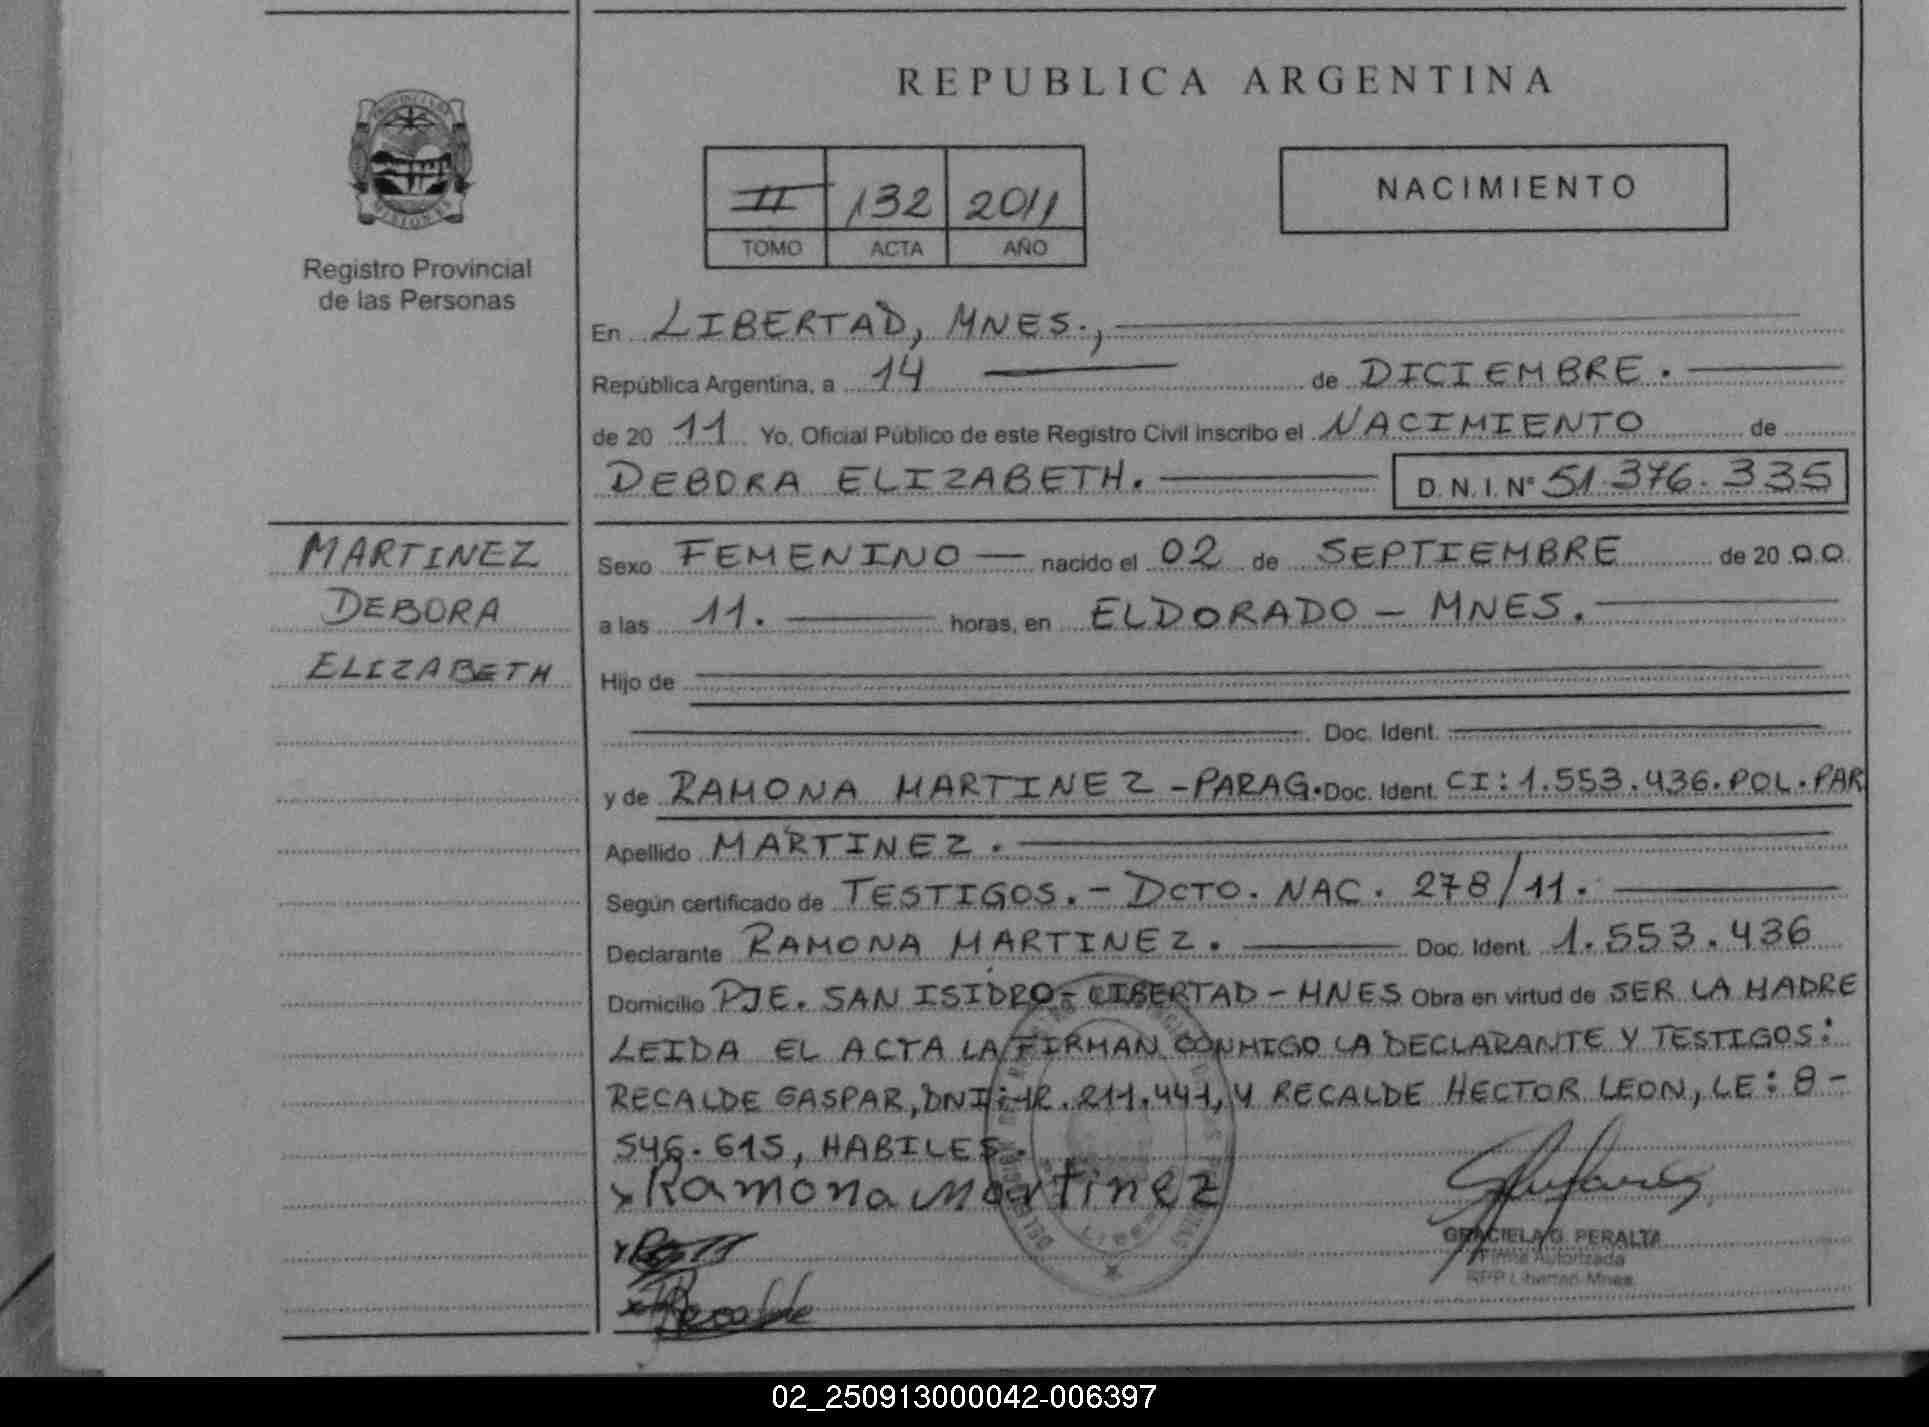 REPUBLICA ARGENTINA
II 132 2011
TOMO ACTA AÑO
NACIMIENTO
Registro Provincial
de las Personas
En LIBERTAD, MNES.,
República Argentina, a 14 de DICIEMBRE.
de 20 11 Yo, Oficial Público de este Registro Civil inscribo el NACIMIENTO de
DEBORA ELIZABETH. D.N.I.Nº 51.376.335
MARTINEZ
DEBORA
ELIZABETH
Sexo FEMENINO nacido el 02 de SEPTIEMBRE de 20 00
a las 11. horas, en ELDORADO - MNES.
Hijo de
Doc. Ident.
y de RAMONA MARTINEZ - PARAG. Doc. Ident. CI: 1.553.436. POL. PAR
Apellido MARTINEZ.
Según certificado de TESTIGOS. - DCTO. NAC. 278/11.
Declarante RAMONA MARTINEZ. Doc. Ident. 1.553.436
Domicilio PJE. SAN ISIDRO - LIBERTAD - MNES Obra en virtud de SER LA MADRE
LEIDA EL ACTA LA FIRMAN CONMIGO LA DECLARANTE Y TESTIGOS:
RECALDE GASPAR, DNI: 12.211.441, Y RECALDE HECTOR LEON, LE: 8-
546.615, HABILES.
x Ramona Martinez
x Recalde
GRACIELA G. PERALTA
Firma Autorizada
RPP Libertad-Mnes
02_250913000042-006397